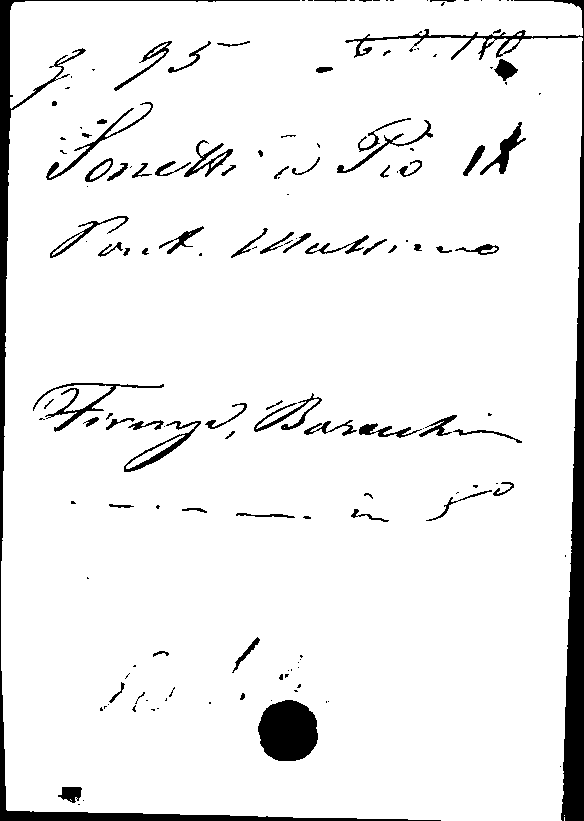 g. 95 6.2.180
Sonetti a Pio IX
Pont. Massimo
Firenze, Baracchi
in 8º